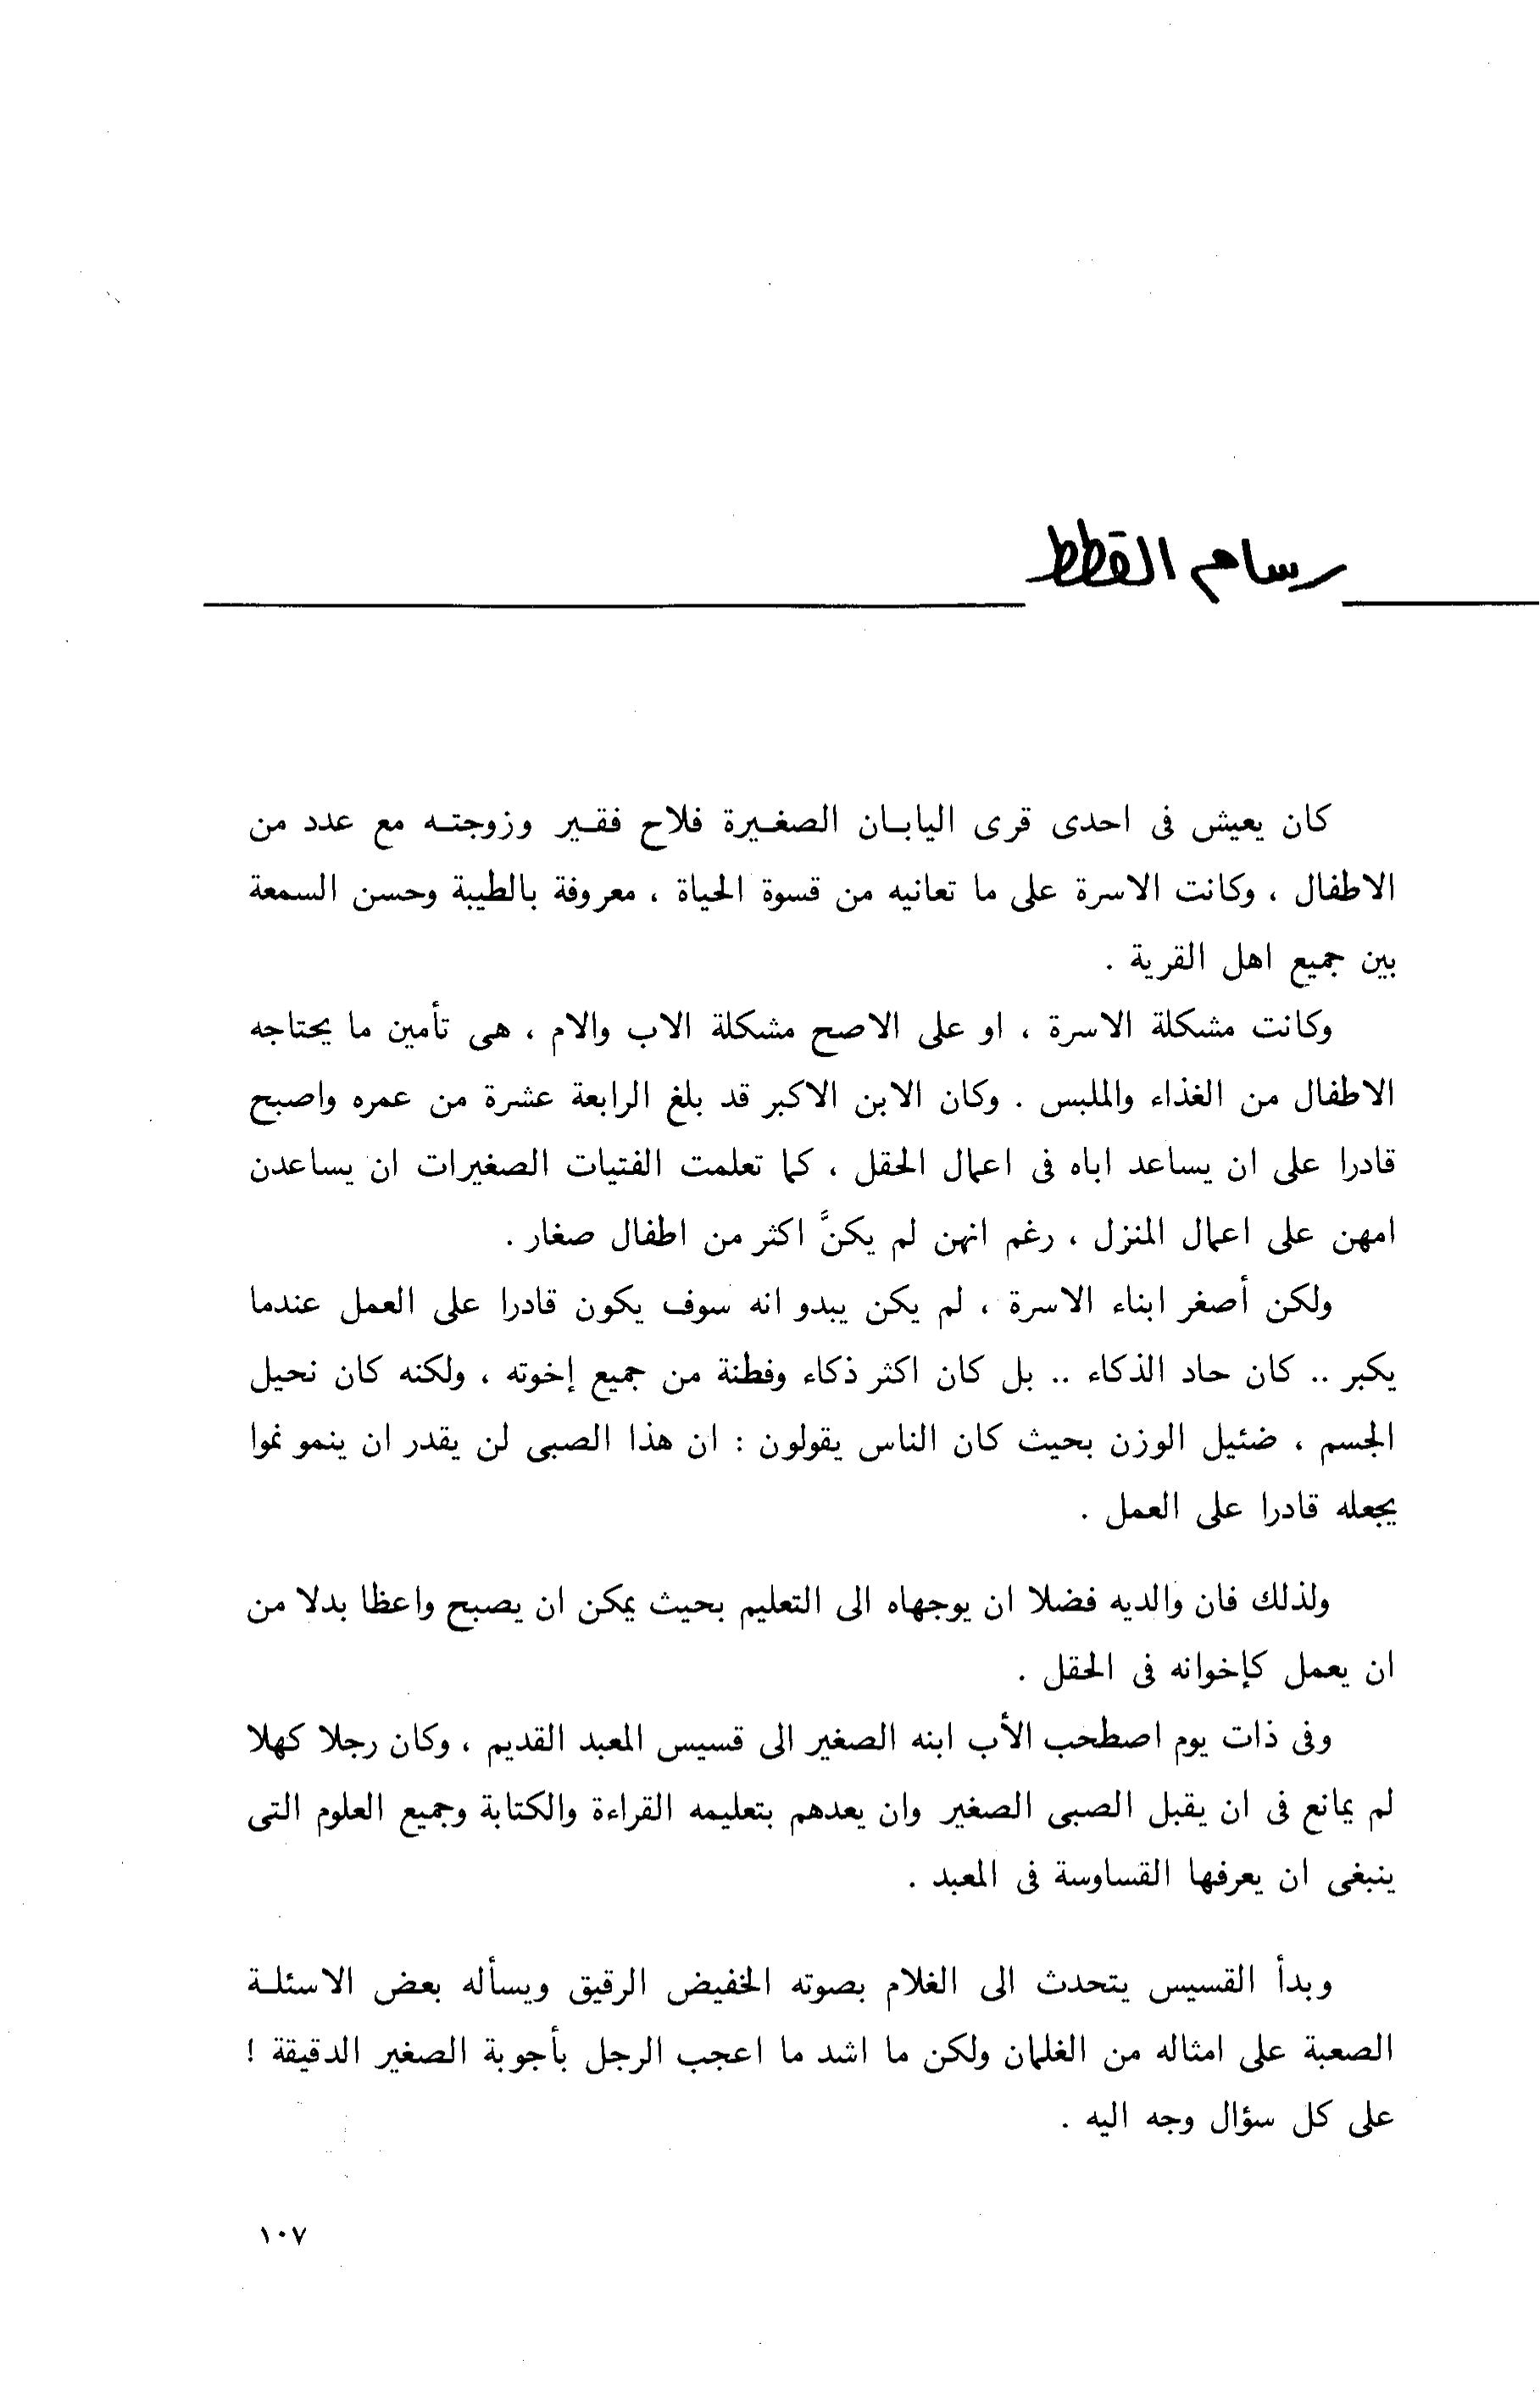 رسام القطط
كان يعيش فى احدى قرى اليابـان الصغـيرة فلاح فقـير وزوجتـه مع عدد من
الاطفال ، وكانت الاسرة على ما تعانيه من قسوة الحياة ، معروفة بالطيبة وحسن السمعة
بين جميع اهل القرية .
وكانت مشكلة الاسرة ، او على الاصح مشكلة الاب والام ، هى تأمين ما يحتاجه
الاطفال من الغذاء والملبس . وكان الابن الاكبر قد بلغ الرابعة عشرة من عمره واصبح
قادرا على ان يساعد اباه فى اعمال الحقل ، كما تعلمت الفتيات الصغيرات ان يساعدن
امهن على اعمال المنزل ، رغم انهن لم يكنَّ اكثر من اطفال صغار .
ولكن أصغر ابناء الاسرة ، لم يكن يبدو انه سوف يكون قادرا على العمل عندما
يكبر .. كان حاد الذكاء .. بل كان اكثر ذكاء وفطنة من جميع إخوته ، ولكنه كان نحيل
الجسم ، ضئيل الوزن بحيث كان الناس يقولون : ان هذا الصبى لن يقدر ان ينمو نموا
يجعله قادرا على العمل .
ولذلك فان والديه فضلا ان يوجهاه الى التعليم بحيث يمكن ان يصبح واعظا بدلا من
ان يعمل كإخوانه فى الحقل .
وفى ذات يوم اصطحب الأب ابنه الصغير الى قسيس المعبد القديم ، وكان رجلا كهلا
لم يمانع فى ان يقبل الصبى الصغير وان يعدهم بتعليمه القراءة والكتابة وجميع العلوم التى
ينبغى ان يعرفها القساوسة فى المعبد .
وبدأ القسيس يتحدث الى الغلام بصوته الخفيض الرقيق ويسأله بعض الاسئلـة
الصعبة على امثاله من الغلمان ولكن ما اشد ما اعجب الرجل بأجوبة الصغير الدقيقة !
على كل سؤال وجه اليه .
١٠٧